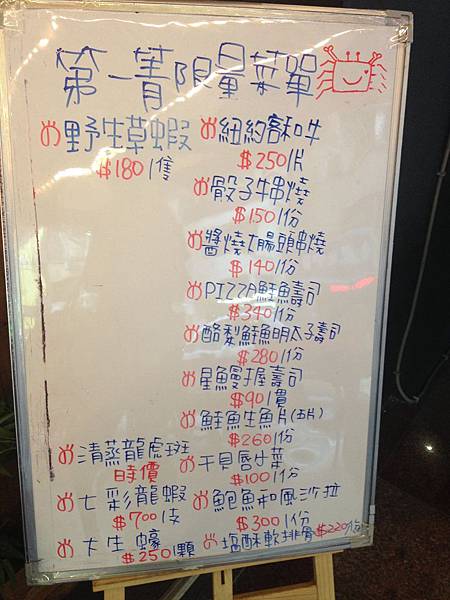 第一菁限量菜單
野生草蝦
$180/隻
紐約客和牛
$250/片
骰子牛串燒
$150/份
醬燒大腸頭串燒
$140/份
PIZZA鮭魚壽司
$340/份
酪梨鮭魚明太子壽司
$280/份
星鰻握壽司
$90/貫
鮭魚生魚片(五片)
$260/份
清蒸龍虎斑
時價
干貝唇小菜
$100/份
七彩龍蝦
$700/支
鮑魚和風沙拉
$300/份
大生蠔
$250/顆
塩酥軟排骨$220/份